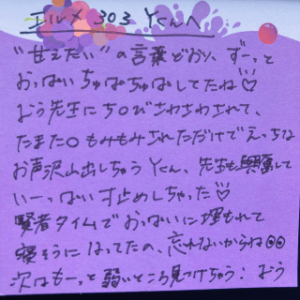 エルメ 303 Yくんへ
"甘えたい"の言葉どおり、ずーっと
おっぱいちゅぱちゅぱしてたね♡
なう先生にちO びさわさわされて、
たまたOもみもみされただけでえっちな
お声沢山出しちゃうYくん、先生も興奮して
いーっぱい寸止めしちゃった♡
賢者タイムでおっぱいに埋もれて
寝そうになってたの、忘れないからね
次はもーっと弱いところ見つけちゃう: なう